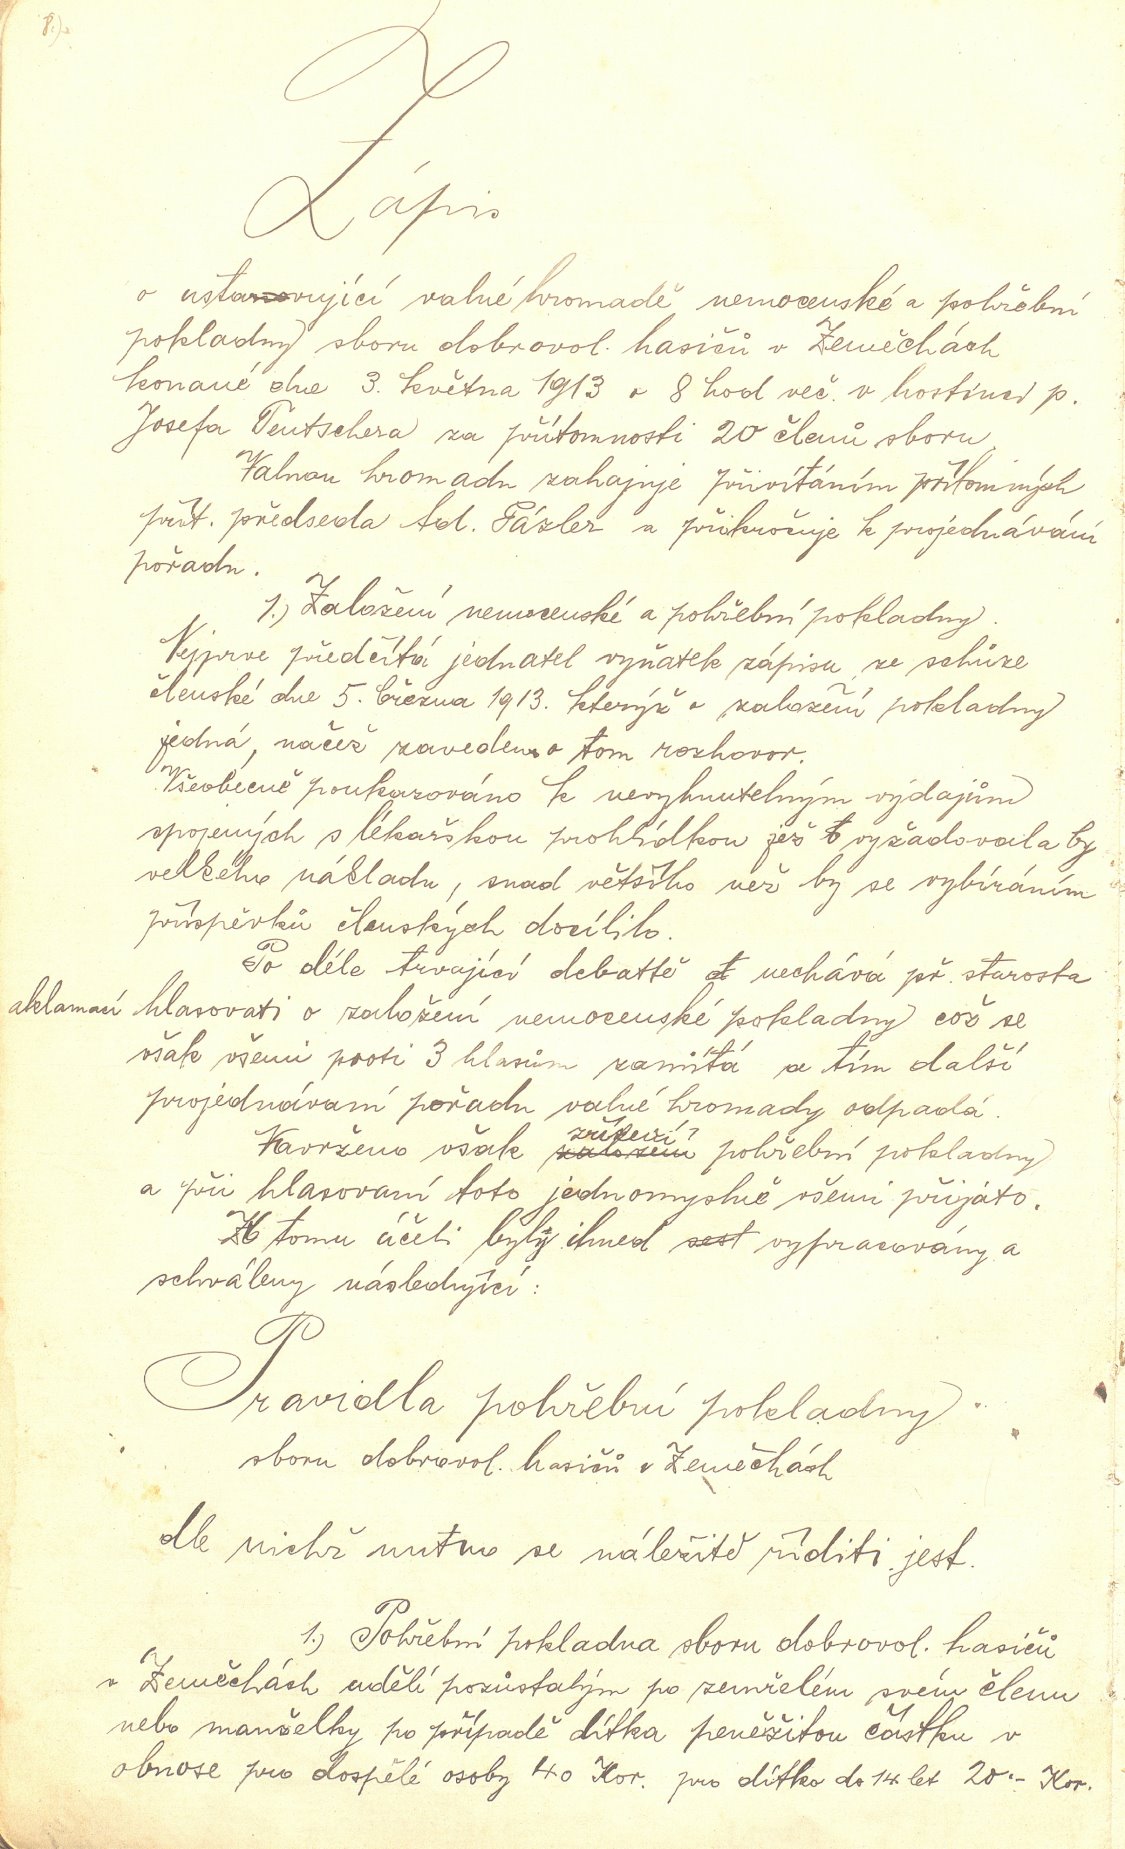 8.)
Zápis
o ustanovující valné hromadě nemocenské a pohřební
pokladny sboru dobrovol. hasičů v Zeměchách
konané dne 3. května 1913 o 8 hod več. v hostinci p.
Josefa Teutschera za přítomnosti 20 členů sboru.
Valnou hromadu zahajuje přivítáním přítomných
přít. předseda Ad. Fázler a přikročuje k projednávání
pořadu.
1.) Založení nemocenské a pohřební pokladny.
Nejprve předčítá jednatel vyňatek zápisu ze schůze
členské dne 5. března 1913. kterýž o založení pokladny
jedná, načež zaveden o tom rozhovor.
Všeobecně poukazováno k nevyhnutelným výdajům
spojených s lékařskou prohlídkou jež vyžadovala by
velkého nákladu, snad většího než by se vybíráním
příspěvků členských docílilo.
Po déle trvající debattě nechává př. starosta
aklamací hlasovati o založení nemocenské pokladny což se
však všemi proti 3 hlasům zamítá a tím další
projednávaní pořadu valné hromady odpadá.
zřízení
Navrženo však založení pohřební pokladny
a při hlasovaní toto jednomyslně všemi přijato.
K tomu účeli byly ihned sest vypracovány a
schváleny následující:
Pravidla pohřební pokladny
sboru dobrovol. hasičů v Zeměchách
dle nichž nutno se náležitě říditi jest.
1.) Pohřební pokladna sboru dobrovol. hasičů
v Zeměchách udělí pozůstalým po zemřelém svém členu
nebo manželky po případě dítka peněžitou částku v
obnose pro dospělé osoby 40 Kor. pro dítko do 14 let 20.- Kor.